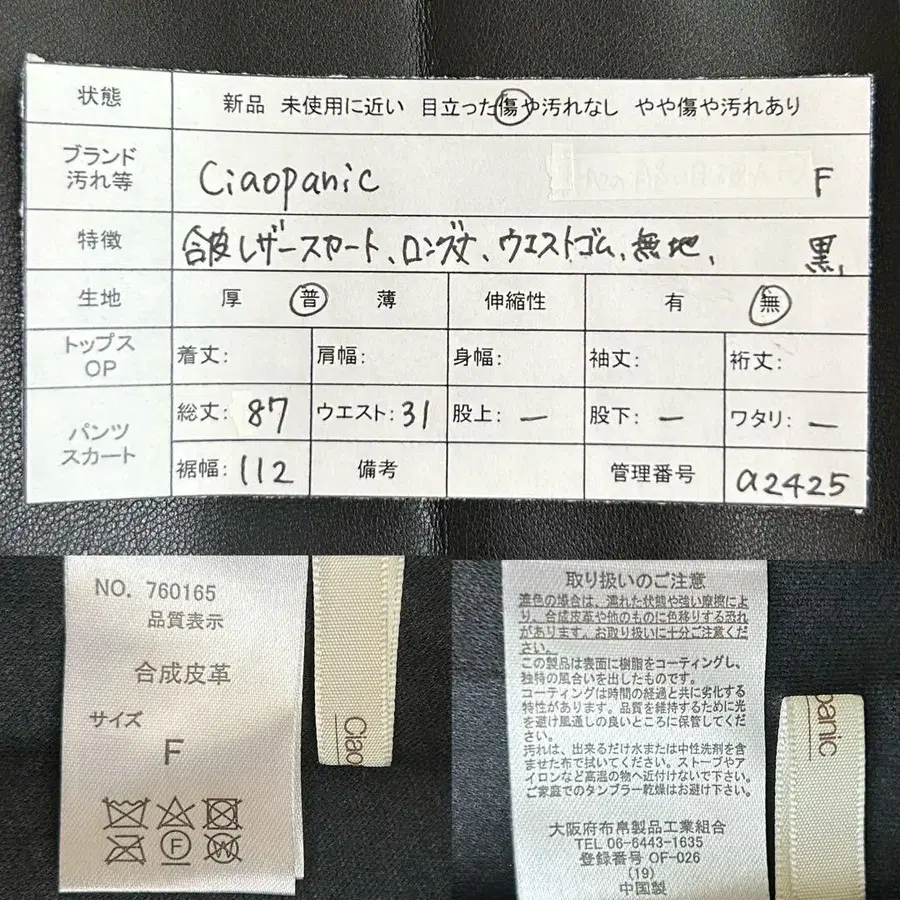 状態 新品 未使用に近い 目立った傷や汚れなし やや傷や汚れあり
ブランド
汚れ等 Ciaopanic F
特徴 合皮レザースカート、ロング丈、ウエストゴム、無地、 黒、
生地 厚 普 薄 伸縮性 有 無
トップス
OP 着丈: 肩幅: 身幅: 袖丈: 裄丈:
パンツ
スカート 総丈: 87 ウエスト: 31 股上: ー 股下: ー ワタリ: ー
裾幅: 112 備考 管理番号 a2425
NO. 760165
品質表示
合成皮革
サイズ
F
Ciao
取り扱いのご注意
濃色の場合は、濡れた状態や強い摩擦によ
り、合成皮革や他のものに色移りする恐れ
があります。お取り扱いに十分ご注意くだ
さい。
この製品は表面に樹脂をコーティングし、
独特の風合いを出したものです。
コーティングは時間の経過と共に劣化する
特性があります。品質を維持するために光
を避け風通しの良いところに保管してくだ
さい。
汚れは、出来るだけ水または中性洗剤を含
ませた布で拭いてください。ストーブやア
イロンなど高温の物へ近付けないで下さい。
ご家庭でのタンブラー乾燥はお避け下さい。
大阪府布帛製品工業組合
TEL 06-6443-1635
登録番号 OF-026
(19)
中国製
panic